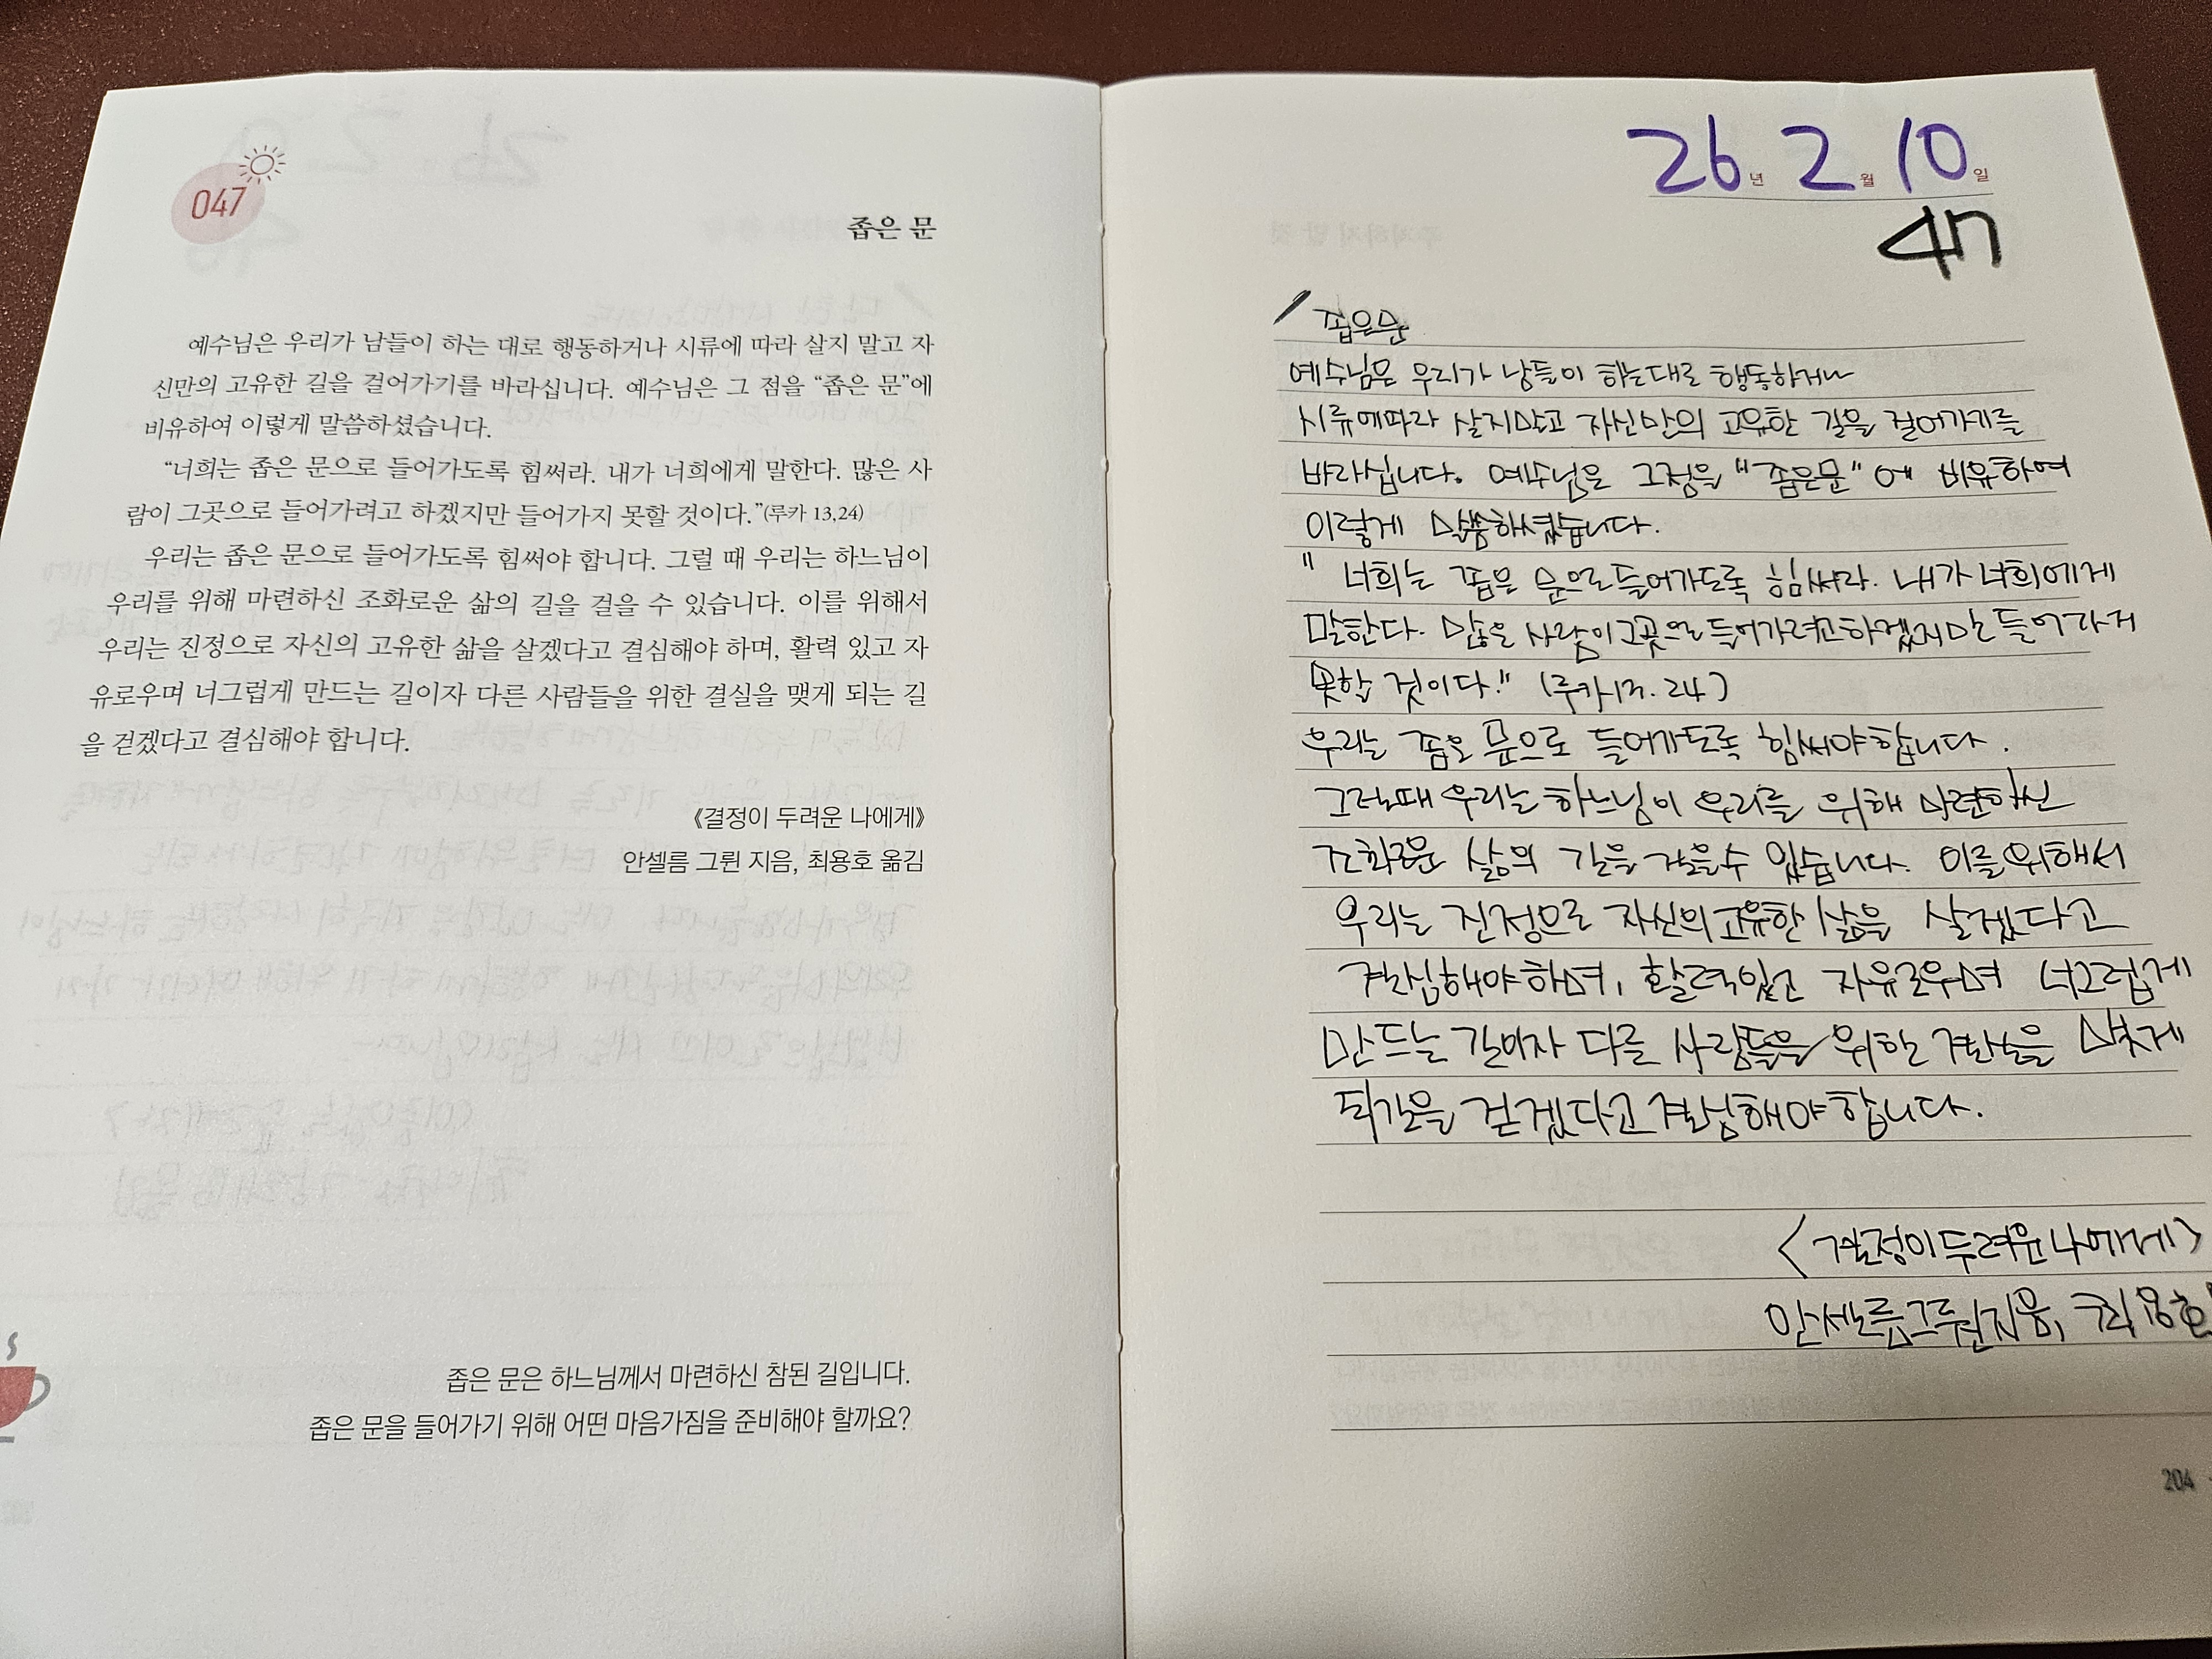 047
좁은 문
예수님은 우리가 남들이 하는 대로 행동하거나 시류에 따라 살지 말고 자
신만의 고유한 길을 걸어가기를 바라십니다. 예수님은 그 점을 “좁은 문”에
비유하여 이렇게 말씀하셨습니다.
“너희는 좁은 문으로 들어가도록 힘써라. 내가 너희에게 말한다. 많은 사
람이 그곳으로 들어가려고 하겠지만 들어가지 못할 것이다.”(루카 13,24)
우리는 좁은 문으로 들어가도록 힘써야 합니다. 그럴 때 우리는 하느님이
우리를 위해 마련하신 조화로운 삶의 길을 걸을 수 있습니다. 이를 위해서
우리는 진정으로 자신의 고유한 삶을 살겠다고 결심해야 하며, 활력 있고 자
유로우며 너그럽게 만드는 길이자 다른 사람들을 위한 결실을 맺게 되는 길
을 걷겠다고 결심해야 합니다.
《결정이 두려운 나에게》
안셀름 그륀 지음, 최용호 옮김
좁은 문은 하느님께서 마련하신 참된 길입니다.
좁은 문을 들어가기 위해 어떤 마음가짐을 준비해야 할까요?
26년 2월 10일
47
좁은문
예수님은 우리가 남들이 하는대로 행동하거나
시류에따라 살지말고 자신만의 고유한 길을 걸어가기를
바라십니다. 예수님은 그점을 "좁은문"에 비유하여
이렇게 말씀하셨습니다.
" 너희는 좁은 문으로들어가도록 힘써라. 내가 너희에게
말한다. 많은 사람이그곳으로들어가려고하겠지만 들어가지
못할 것이다." (루카13. 24)
우리는 좁은 문으로 들어가도록 힘써야합니다.
그럴때 우리는 하느님이 우리를 위해 마련하신
조화로운 삶의 길을 걸을수 있습니다. 이를위해서
우리는 진정으로 자신의고유한 삶을 살겠다고
결심해야하며, 활력있고 자유로우며 너그럽게
만드는 길이자 다른 사람들을 위한 결실을 맺게
되길을 걷겠다고결심해야합니다.
<결정이두려운나에게>
안셀름그륀지음, 최용호
204